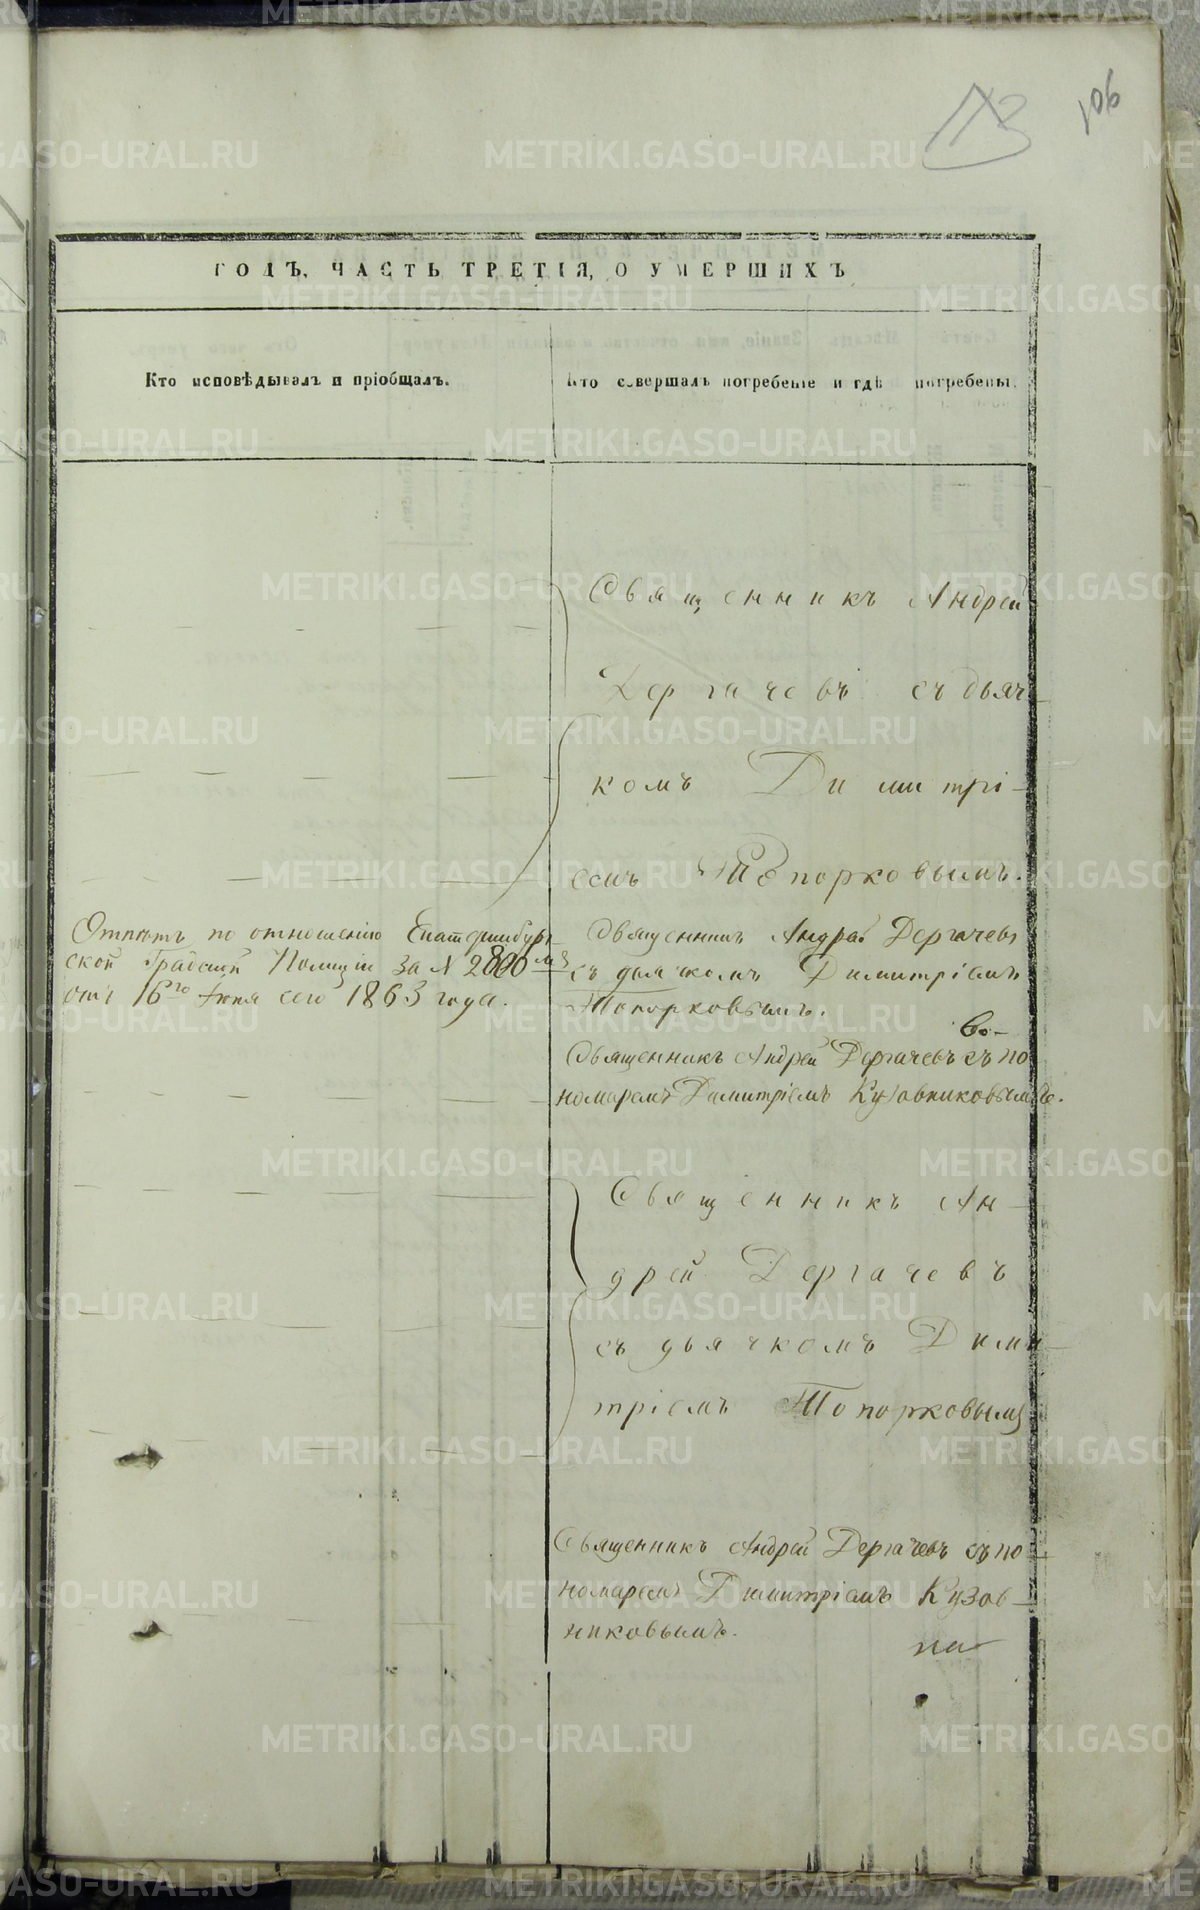 106
173
ГОДЪ, ЧАСТЬ ТРЕТІЯ, О УМЕРШИХЪ
Кто исповѣдывалъ и пріобщалъ.
Кто совершалъ погребеніе и гдѣ погребены.
Священникъ Андрей
Дергачевъ съ дьяч-
комъ Димитрі-
емъ Топорковымъ.
Отпѣтъ по отношенію Екатеринбург-
ской Градской Полиціи за N 2800 мъ
отъ 16го Іюня сего 1863 года.
Священникъ Андрей Дергачевъ
съ дьячкомъ Димитріемъ
Топорковымъ.
Священникъ Андрей Дергачевъ съ по
номаремъ Димитріемъ Кузовниковымъ.
Священникъ Ан-
дрей Дергачевъ
съ дьячкомъ Дими-
тріемъ Топорковымъ
Священникъ Андрей Дергачевъ съ по-
номаремъ Димитріемъ Кузов-
никовымъ.
на
METRIKI.GASO-URAL.RU